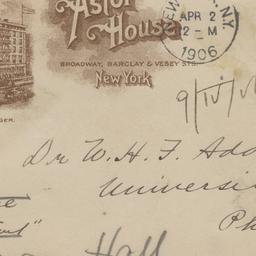 Astor
House
BROADWAY, BARCLAY & VESEY STS.
New York
NEW N.Y.
APR 2
2-M
1906
GER.
9/IV/0
Dr W. H. F. Add
Universi
Ph
Hall